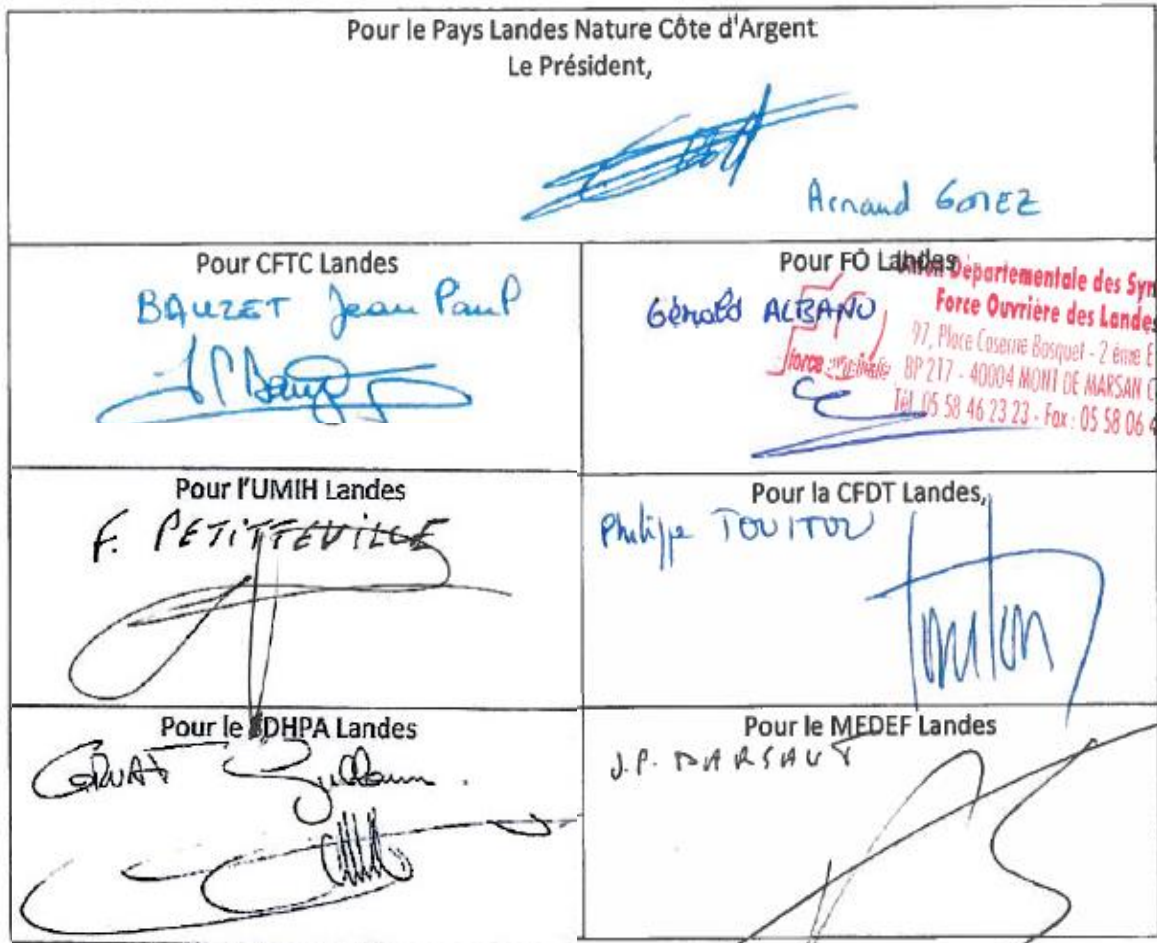 Pour le Pays Landes Nature Côte d'Argent
Le Président,
Arnaud GOMEZ
Pour CFTC Landes
BAUZET Jean Paul
Pour FO Landes
Gérald ALBANO
Départementale des Syn
Force Ouvrière des Landes
97, Place Caserne Bosquet - 2 ème E
force ouvrière
BP 217 - 40004 MONT DE MARSAN C
Tél. 05 58 46 23 23 - Fax : 05 58 06 4
Pour l'UMIH Landes
F. PETITTEVILLE
Pour la CFDT Landes,
Philippe TOUITOU
Pour le SDHPA Landes
Guillaume
Pour le MEDEF Landes
J.P.